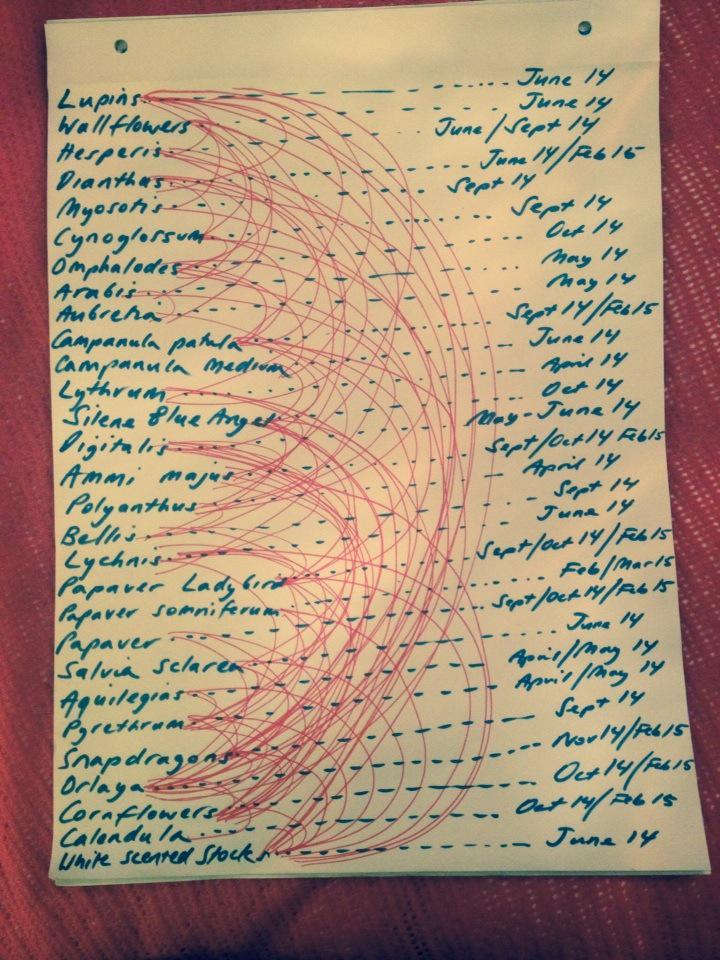 Lupins June 14
Wallflowers June 14
Hesperis June/Sept 14
Dianthus June 14/Feb 15
Myosotis Sept 14
Cynoglossum Sept 14
Omphalodes Oct 14
Arabis May 14
Aubretia May 14
Campanula patula Sept 14/Feb 15
Campanula Medium June 14
Lythrum April 14
Silene Blue Angel Oct 14
Digitalis May-June 14
Ammi majus Sept/Oct 14 Feb 15
Polyanthus April 14
Bellis Sept 14
Lychnis June 14
Papaver Ladybird Sept/Oct 14/Feb 15
Papaver somniferum Feb/Mar 15
Papaver Sept/Oct 14/Feb 15
Salvia sclarea June 14
Aquilegias April/May 14
Pyrethrum April/May 14
Snapdragons Sept 14
Orlaya Nov 14/Feb 15
Cornflowers Oct 14/Feb 15
Calendula Oct 14/Feb 15
White Scented Stocks June 14